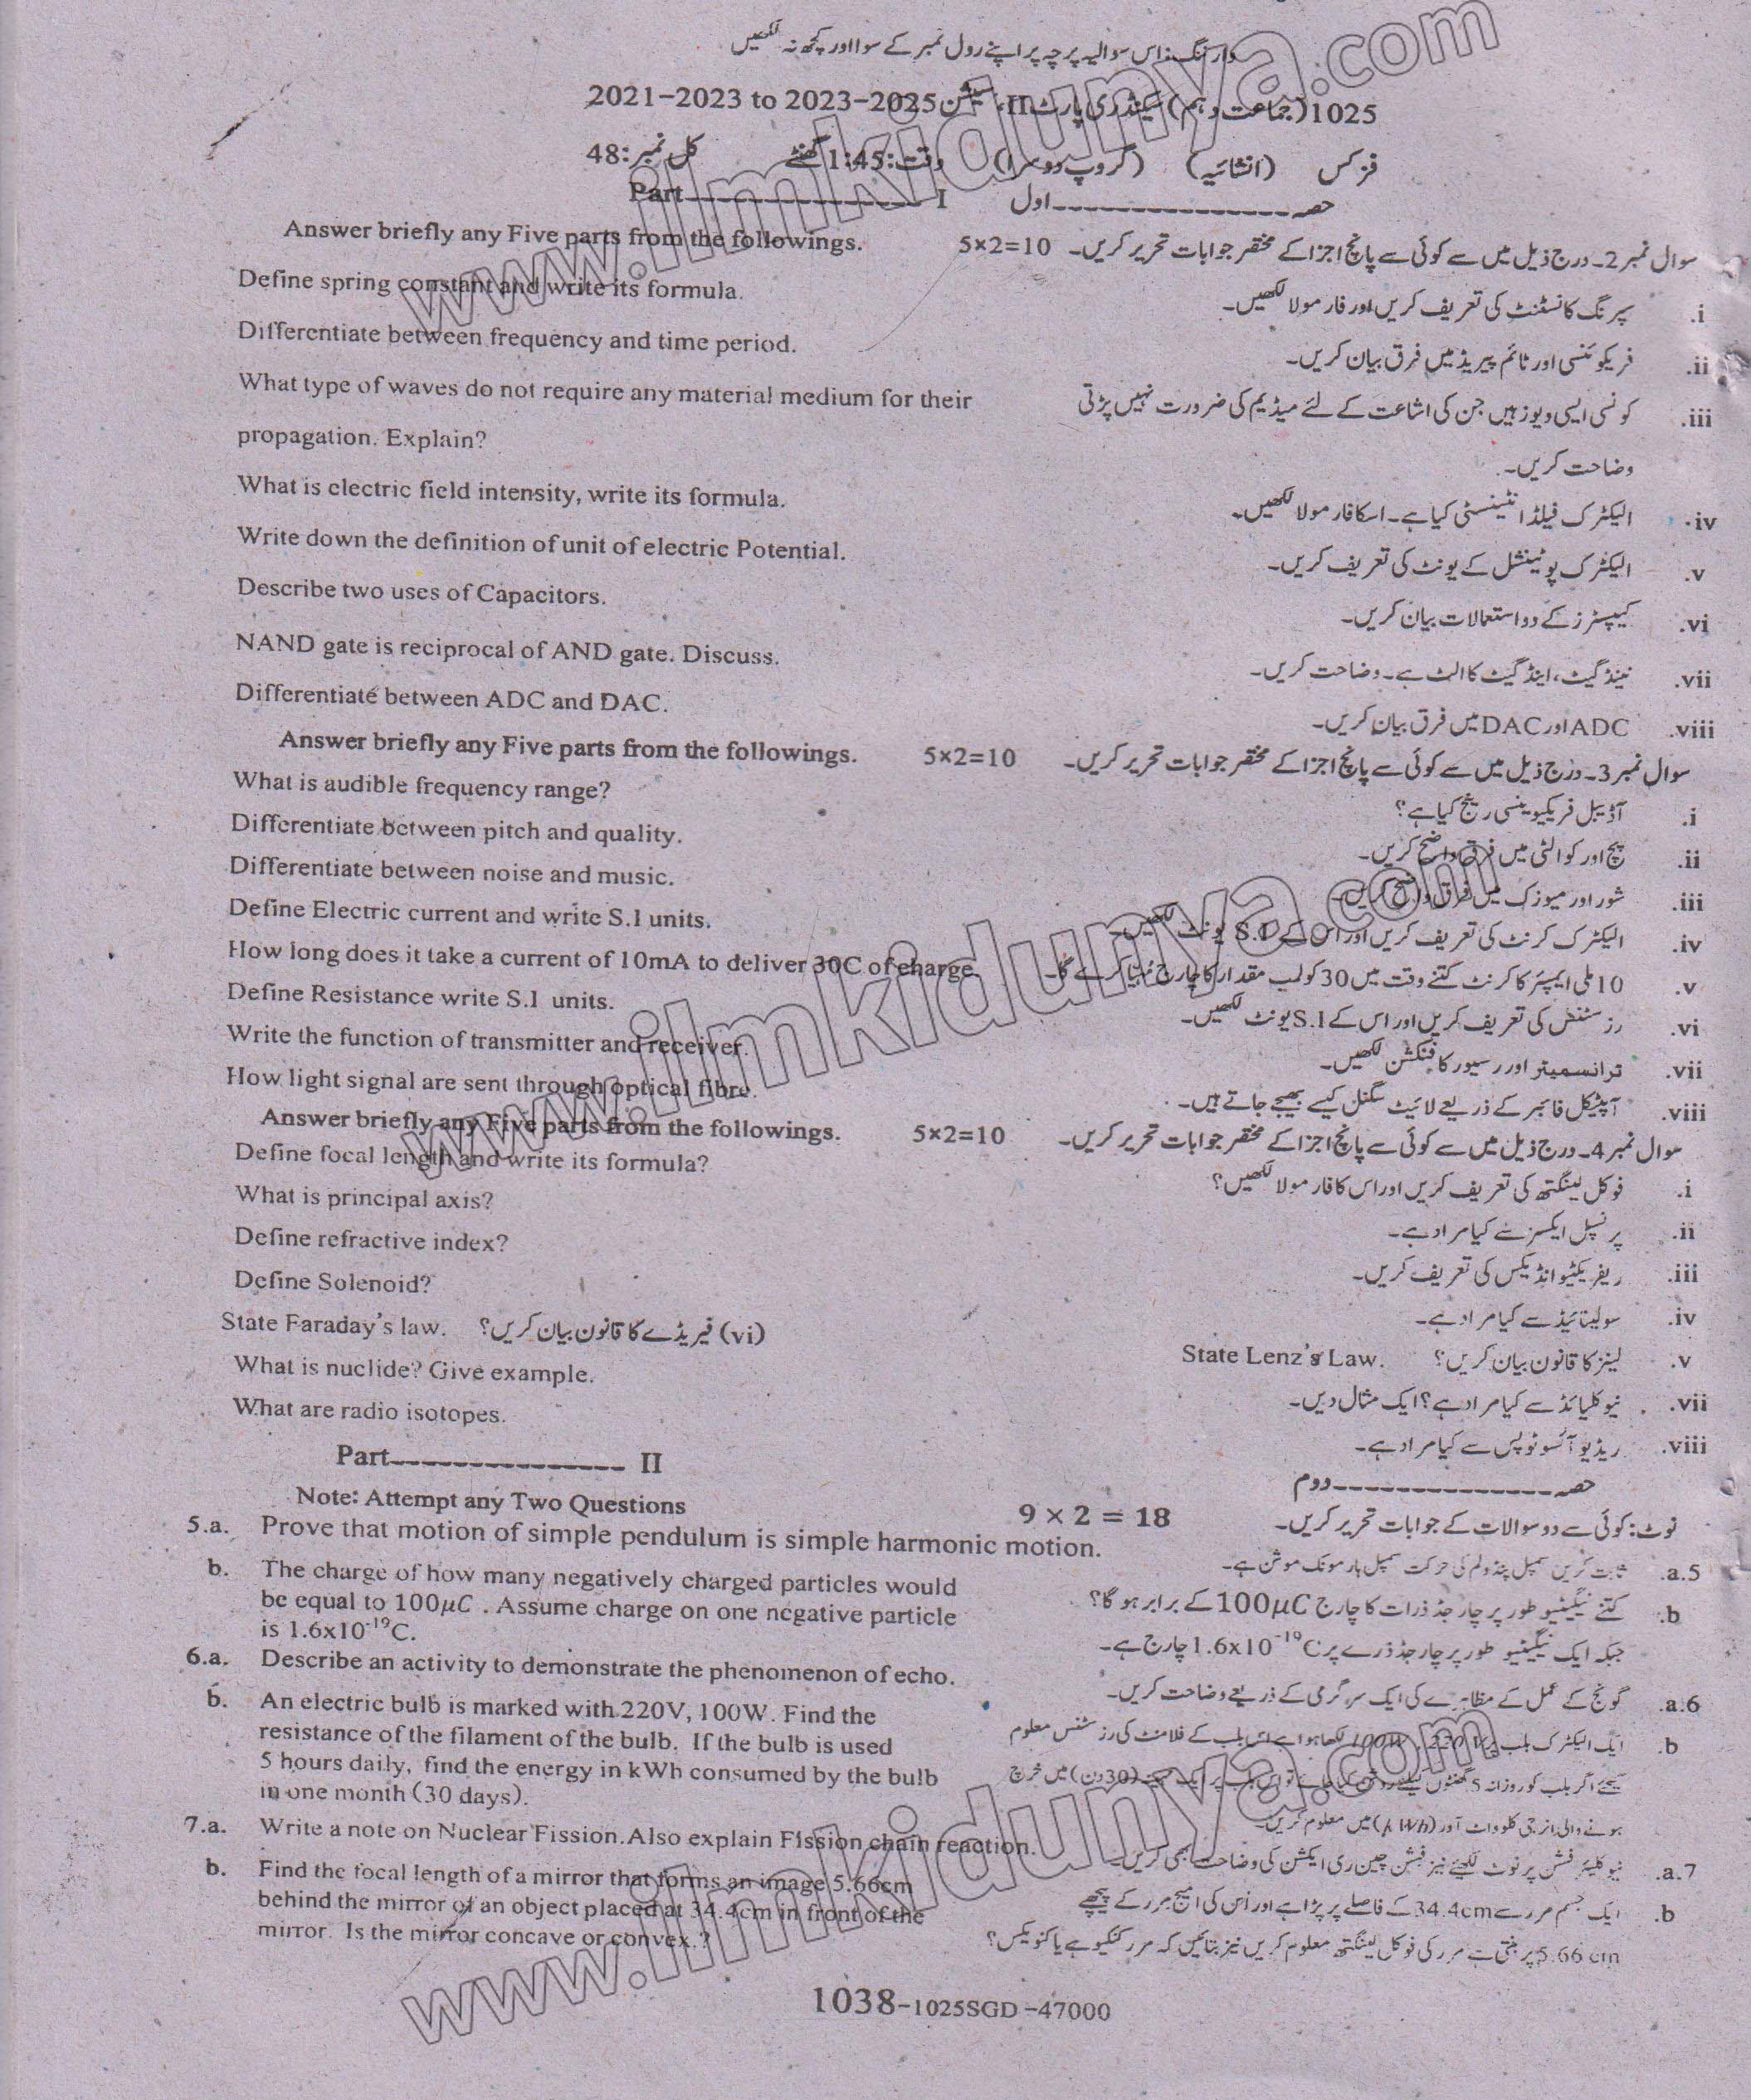 وارننگ: اس سوالیہ پرچہ پر اپنے رول نمبر کے سوا اور کچھ نہ لکھیں
1025(جماعت دہم) سیکنڈری پارٹ II، سیشن 2021-2023 to 2023-2025
فزکس (انشائیہ) (گروپ دوسرا) وقت: 1:45 گھنٹے کل نمبر: 48
Part---------------- I حصہ---------------اول
Answer briefly any Five parts from the followings. 5×2=10 سوال نمبر 2۔ درج ذیل میں سے کوئی سے پانچ اجزا کے مختصر جوابات تحریر کریں۔
Define spring constant and write its formula. سپرنگ کانسٹنٹ کی تعریف کریں اور فارمولا لکھیں۔ i.
Differentiate between frequency and time period. فریکوئنسی اور ٹائم پیریڈ میں فرق بیان کریں۔ ii.
What type of waves do not require any material medium for their کونسی ایسی ویوز ہیں جن کی اشاعت کے لئے میڈیم کی ضرورت نہیں پڑتی iii.
propagation. Explain? وضاحت کریں۔
What is electric field intensity, write its formula. الیکٹرک فیلڈ انٹینسٹی کیا ہے۔ اسکا فارمولا لکھیں۔ iv.
Write down the definition of unit of electric Potential. الیکٹرک پوٹینشل کے یونٹ کی تعریف کریں۔ v.
Describe two uses of Capacitors. کیپسٹرز کے دو استعمالات بیان کریں۔ vi.
NAND gate is reciprocal of AND gate. Discuss. نینڈ گیٹ، اینڈ گیٹ کا الٹ ہے۔ وضاحت کریں۔ vii.
Differentiate between ADC and DAC. ADC اور DAC میں فرق بیان کریں۔ viii.
Answer briefly any Five parts from the followings. 5×2=10 سوال نمبر 3۔ درج ذیل میں سے کوئی سے پانچ اجزا کے مختصر جوابات تحریر کریں۔
What is audible frequency range? آڈیبل فریکیوینسی رینج کیا ہے؟ i.
Differentiate between pitch and quality. پچ اور کوالٹی میں فرق واضح کریں۔ ii.
Differentiate between noise and music. شور اور میوزک میں فرق واضح کریں۔ iii.
Define Electric current and write S.I units. الیکٹرک کرنٹ کی تعریف کریں اور اس کے S.I یونٹ لکھیں۔ iv.
How long does it take a current of 10mA to deliver 30C of charge. 10 ملی ایمپئر کا کرنٹ کتنے وقت میں 30 کولمب مقدار کا چارج مہیا کرے گا۔ v.
Define Resistance write S.I units. رزسٹنس کی تعریف کریں اور اس کے S.I یونٹ لکھیں۔ vi.
Write the function of transmitter and receiver. ٹرانسمیٹر اور رسیور کا فنکشن لکھیں۔ vii.
How light signal are sent through optical fibre. آپٹیکل فائبر کے ذریعے لائیٹ سگنل کیسے بھیجے جاتے ہیں۔ viii.
Answer briefly any Five parts from the followings. 5×2=10 سوال نمبر 4۔ درج ذیل میں سے کوئی سے پانچ اجزا کے مختصر جوابات تحریر کریں۔
Define focal length and write its formula? فوکل لینگتھ کی تعریف کریں اور اس کا فارمولا لکھیں؟ i.
What is principal axis? پرنسپل ایکسز سے کیا مراد ہے۔ ii.
Define refractive index? ریفریکٹیو انڈیکس کی تعریف کریں۔ iii.
Define Solenoid? سولینائیڈ سے کیا مراد ہے۔ iv.
State Faraday's law. فیریڈے کا قانون بیان کریں؟ (vi) State Lenz's Law. لینز کا قانون بیان کریں؟ v.
What is nuclide? Give example. نیوکلیائڈ سے کیا مراد ہے؟ ایک مثال دیں۔ vii.
What are radio isotopes. ریڈیو آئسوٹوپس سے کیا مراد ہے۔ viii.
Part---------------- II حصہ---------------دوم
Note: Attempt any Two Questions 9 × 2 = 18 نوٹ: کوئی سے دو سوالات کے جوابات تحریر کریں۔
5.a. Prove that motion of simple pendulum is simple harmonic motion. ثابت کریں سمپل پنڈولم کی حرکت سمپل ہارمونک موشن ہے۔ a.5
b. The charge of how many negatively charged particles would کتنے نیگیٹیو طور پر چارجڈ ذرات کا چارج 100µC کے برابر ہو گا؟ b.
be equal to 100µC . Assume charge on one negative particle
is 1.6x10⁻¹⁹C. جبکہ ایک نیگیٹیو طور پر چارجڈ ذرے پر 1.6x10⁻¹⁹C چارج ہے۔
6.a. Describe an activity to demonstrate the phenomenon of echo. گونج کے عمل کے مظاہرے کی ایک سرگرمی کے ذریعے وضاحت کریں۔ a.6
b. An electric bulb is marked with 220V, 100W. Find the ایک الیکٹرک بلب پر 220V 100W لکھا ہوا ہے اس بلب کے فلامنٹ کی رزسٹنس معلوم b.
resistance of the filament of the bulb. If the bulb is used
5 hours daily, find the energy in kWh consumed by the bulb کیجئے اگر بلب کو روزانہ 5 گھنٹوں (30 دن) میں خرچ
in one month (30 days). ہونے والی انرجی کلو واٹ آور (kWh) میں معلوم کریں۔
7.a. Write a note on Nuclear Fission.Also explain Fission chain reaction. نیوکلیئر فشن پر نوٹ لکھیئے نیز فشن چین ری ایکشن کی وضاحت بھی کریں۔ a.7
b. Find the focal length of a mirror that forms an image 5.66cm
behind the mirror of an object placed at 34.4cm in front of the ایک جسم مرر سے 34.4cm کے فاصلے پر پڑا ہے اور اس کی امیج مرر کے پیچھے b.
mirror. Is the mirror concave or convex.? 5.66 cm پر بنتی ہے مرر کی فوکل لینگتھ معلوم کریں نیز بتائیں کہ مرر کنکیو ہے یا کنویکس؟
1038-1025SGD -47000
www.ilmkidunya.com
www.ilmkidunya.com
www.ilmkidunya.com